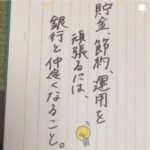 貯金、節約、運用を
頑張るには、
銀行と仲良くなること。